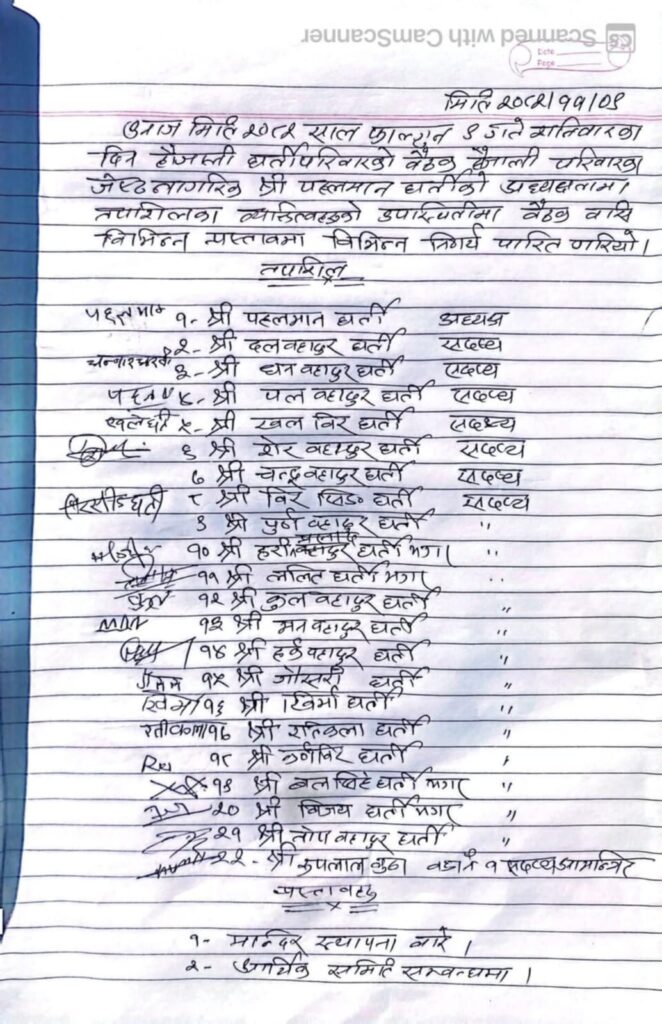 Scanned with CamScanner
CS
Date
Page
मिति २०८२/११/०९
आज मिति २०८२ साल फाल्गुन ९ गते शनिवारका
दिन हैजाली घर्तीपरिवारको वैठक हैजाली परिवारका
जेष्ठनागरिक श्री पहलमान घर्तीको अध्यक्षतामा
तपाशिलका व्याक्तित्वहरुको उपास्थितीमा वैठक वसि
विभिन्न प्रस्तावमा विभिन्न निर्णय पारित गरियो।
तपाशिल
पहलमान १- श्री पहलमान घर्ती अध्यक्ष
२- श्री दलवहादुर घर्ती सदष्य
३- श्री धन वहादुर घर्ती सदष्य
४- श्री पल वहादुर घर्ती सदष्य
५- श्री खल विर घर्ती सदष्य
६ श्री शेर वहादुर घर्ती सदष्य
७ श्री चन्द्र वहादुर घर्ती सदष्य
विरसीङ घर्ती ८ श्री विर सिङ घर्ती सदष्य
९ श्री पुर्ण वहादुर घर्ती "
१० श्री हरी प्रसाद घर्ती मगर "
११ श्री ललित घर्ती मगर "
१२ श्री कुल वहादुर घर्ती "
मान १३ श्री मन वहादुर घर्ती "
१४ श्री हर्क वहादुर घर्ती "
१५ श्री जौसरी घर्ती "
खिमा १६ श्री खिमा घर्ती "
रतीकला १७ श्री रतिकला घर्ती "
१८ श्री कर्णविर घर्ती "
१९ श्री वल घर्ती मगर "
२० श्री विजय घर्ती मगर "
२१ श्री तोप वहादुर घर्ती "
२२- श्री रुपलाल वुढा वडा नं १ सदष्य आमान्त्रित
प्रस्तावहरु
१- मान्दिर स्थापना वारे।
२- आर्थिक समिति सम्वन्धमा।